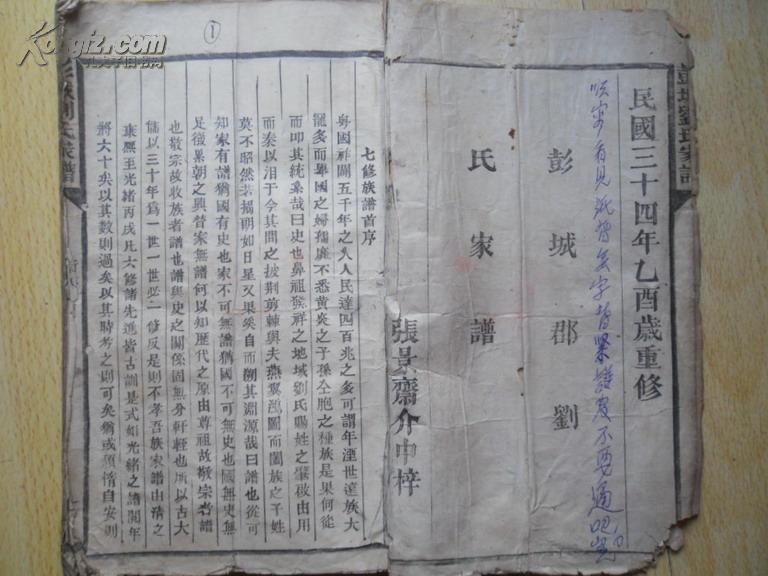 民國三十四年乙酉歲重修
彭城郡劉
氏家譜
張景齋介中梓
七修族譜首序
粵國祚開五千年之久人民達四百兆之多可謂年湮世遠族大
龍多而舉國之婦孺靡不悉黃炎之子孫仝胞之種族是果何從
而叩其統業哉曰史也鼻祖發祥之地域劉氏賜姓之肇啟由用
而泰以洎于今其間之披荆剪棘與夫燕翼鴻圖而闔族之子姓
莫不昭然若揭明如日星又果奚自而溯其淵源哉曰譜也從可
知家有譜猶國有史也家不可無譜猶國不可無史也國無史無
足徵累朝之興替家無譜何以知歷代之原由尊祖故敬宗者譜
也敬宗故收族者譜也譜與史之關係固無分軒輊也所以古大
儒以三十年爲一世一世必一修反是則不孝吾族家譜由清之
康熙至光緒丙戌凡六修諸先進皆古訓是式細光緒之譜閱年
將六十矣以其數則過矣以其時考之則可矣猶或須惰自安則
彭城劉氏家譜
劉氏宗譜
①
Kongfz.com
孔夫子旧书网